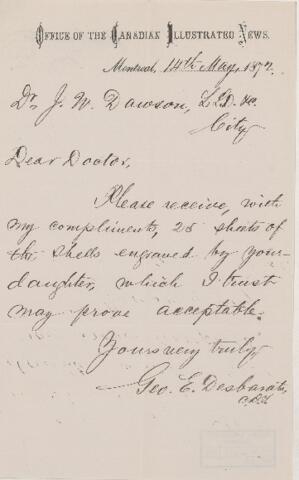 OFFICE OF THE CANADIAN ILLUSTRATED NEWS.
Montreal, 14th May, 1872.
Dr. J. W. Dawson, LL.D. &c.
City
Dear Doctor,
Please receive, with
my compliments, 25 sheets of
the shells engraved by your
daughter, which I trust
may prove acceptable.
Yours very truly
Geo. E. Desbarats